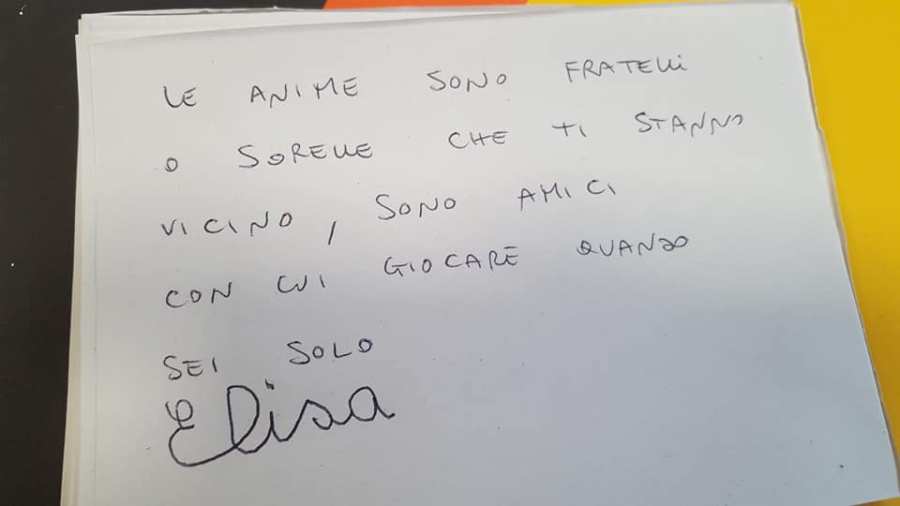 LE ANIME SONO FRATELLI
O SORELLE CHE TI STANNO
VICINO, SONO AMICI
CON CUI GIOCARE QUANDO
SEI SOLO
Elisa